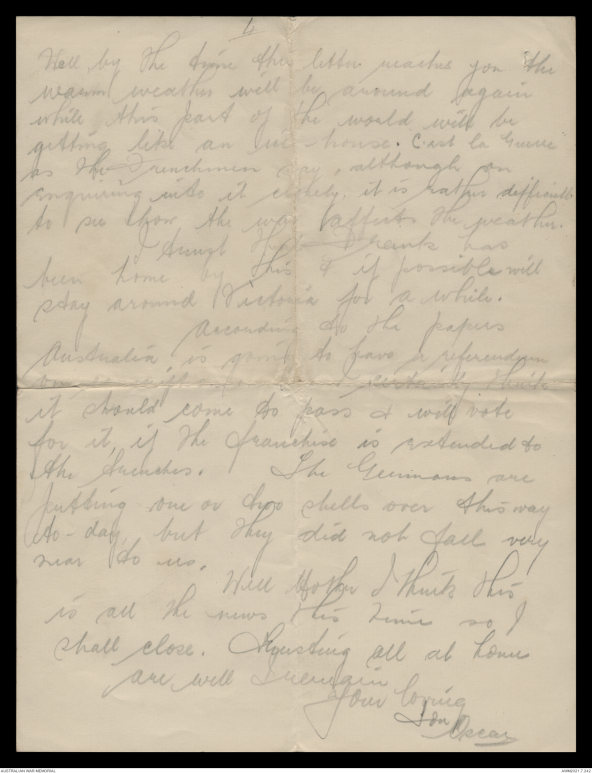 4
Well by the time this letter reaches you the
warm weather will be around again
while this part of the world will be
getting like an ice-house. C'est la Guerre
as the Frenchmen say, although on
enquiring into it closely it is rather difficult
to see how the war affects the weather.
I thought that Frank has
been home by this & if possible will
stay around Victoria for a while.
According to the papers
Australia is going to have a referendum
on certainly think
it should come to pass & will vote
for it, if the franchise is extended to
the trenches. The Germans are
putting one or two shells over this way
to-day, but they did not fall very
near to us.
Well Mother I think this
is all the news this time so I
shall close. Trusting all at home
are well I remain
Your loving
Son
Oscar
AUSTRALIAN WAR MEMORIAL